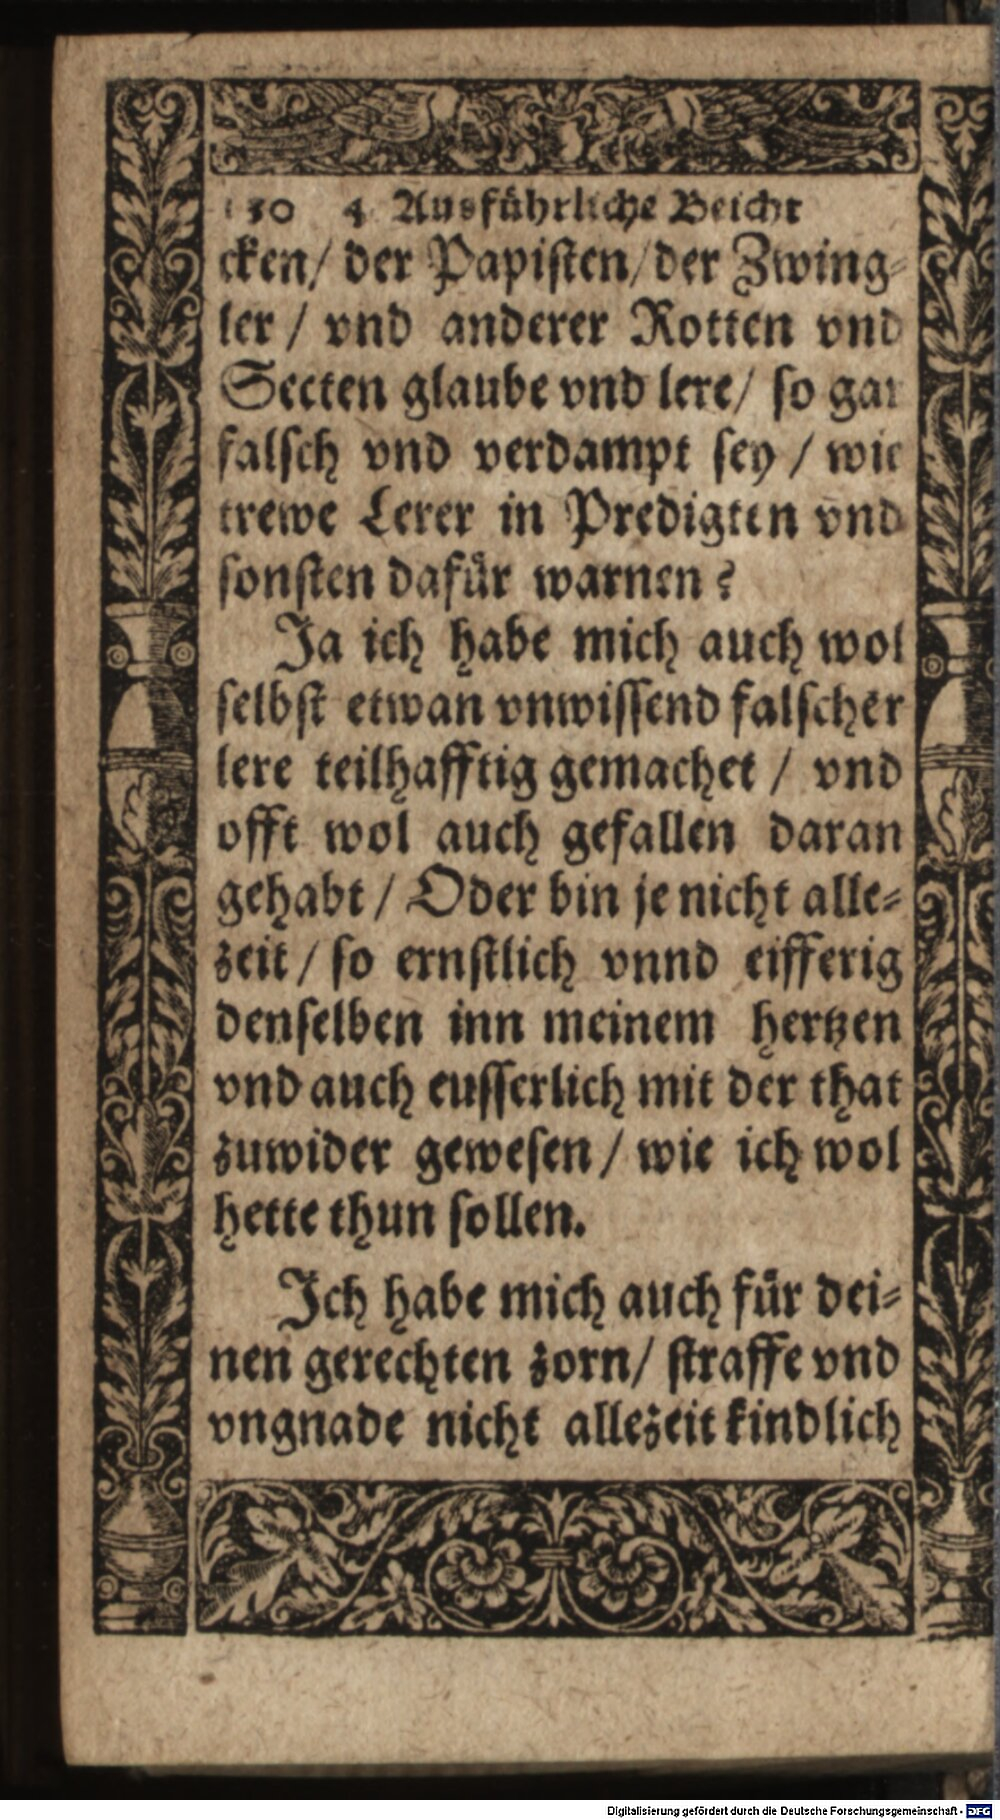 130 4. Ausführliche Beicht
cken/ der Papiſten/ der Zwing⸗
ler / vnd anderer Rotten vnd
Secten glaube vnd lere/ ſo gar
falſch vnd verdampt ſey / wie
trewe Lerer in Predigten vnd
ſonſten dafuͤr warnen?
Ja ich habe mich auch wol
ſelbſt etwan vnwiſſend falſcher
lere teilhafftig gemachet / vnd
offt wol auch gefallen daran
gehabt / Oder bin je nicht alle⸗
zeit / ſo ernſtlich vnnd eifferig
denſelben inn meinem hertzen
vnd auch euſſerlich mit der that
zuwider geweſen / wie ich wol
hette thun ſollen.
Ich habe mich auch fuͤr dei⸗
nen gerechten zorn/ ſtraffe vnd
vngnade nicht allezeit kindlich
Digitalisierung gefördert durch die Deutsche Forschungsgemeinschaft - DFG